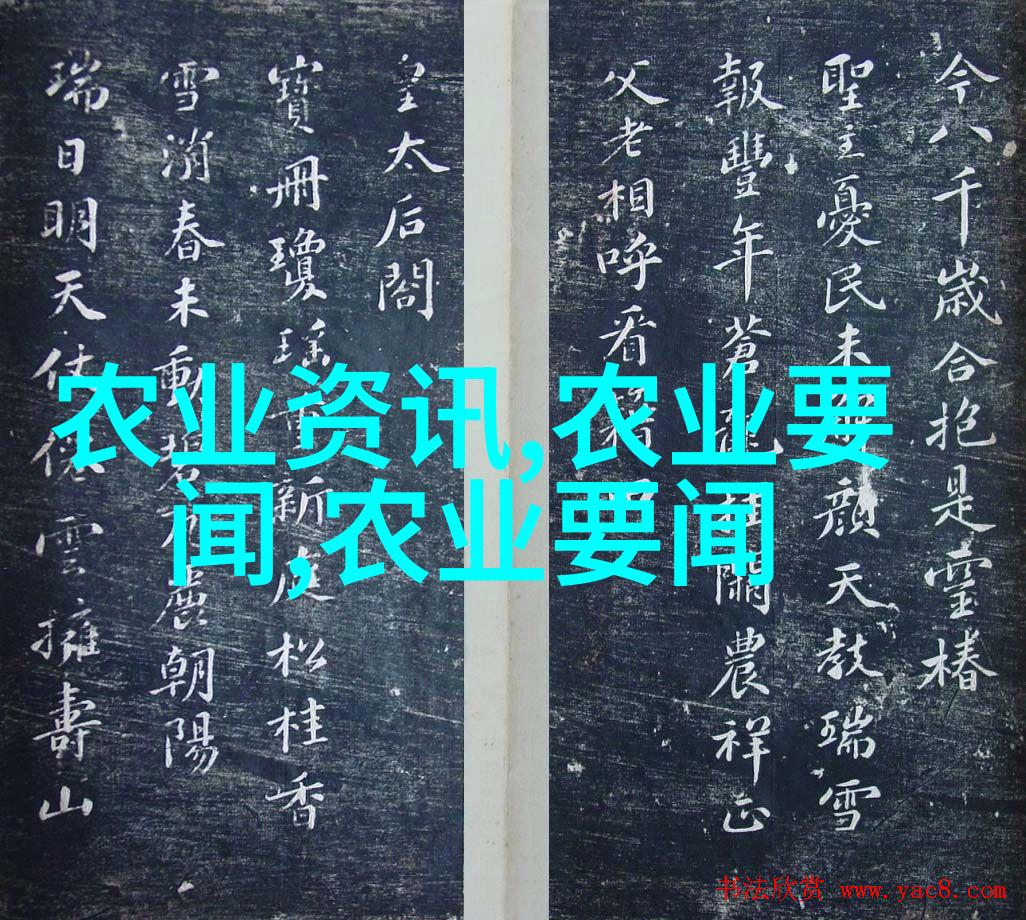 今八千歲合抱是靈椿
聖主憂民未顏天教瑞雪
報豐年蒼龍闕農祥正
父老相呼看
皇太后閤
寶冊瓊瑤新庭松桂香
雪消春未動麗朝陽
瑞日明天仗雲擁壽山
农业资讯,农业要
闻,农业要闻
书法欣赏 www.yac8.com